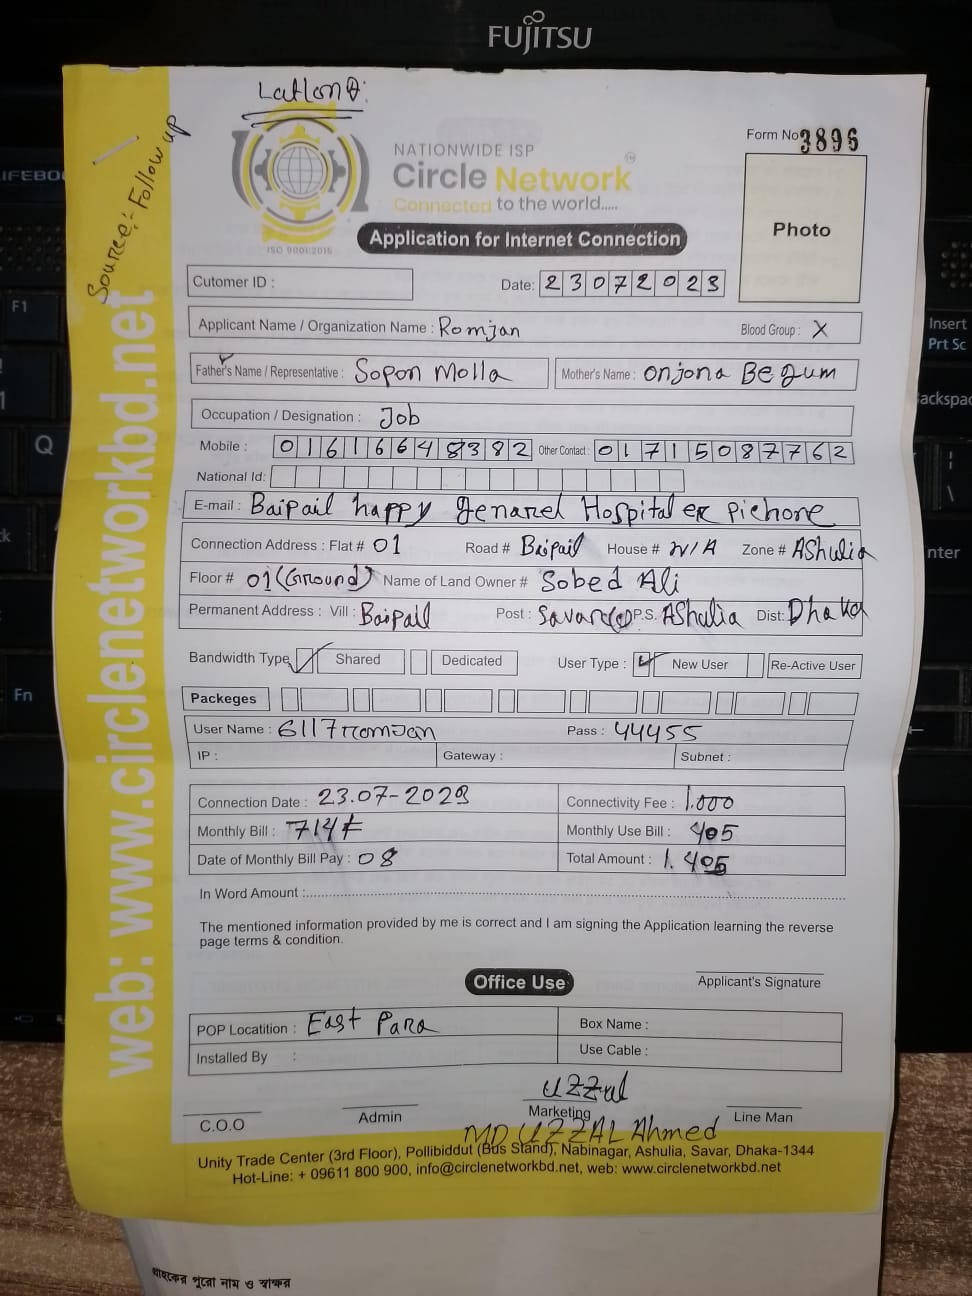 FUJITSU
Source:- Follow up
NATIONWIDE ISP
Circle Network
Connected to the world.....
ISO 9001:2015
Form No 3896
Photo
Application for Internet Connection
Cutomer ID :
Date: 23072023
Applicant Name / Organization Name : Romjan Blood Group : X
Father's Name / Representative : Sopon Molla Mother's Name : Onjona Begum
Occupation / Designation : Job
Mobile : 01616648382 Other Contact : 01715087762
National Id:
E-mail : Baipail happy Jenarel Hospital er Pichone
Connection Address : Flat # 01 Road # Baipail House # N/A Zone # AShulia
Floor # 01 (Ground) Name of Land Owner # Sobed Ali
Permanent Address : Vill : Baipail Post : Savar P.S. AShulia Dist: Dhaka
Bandwidth Type Shared Dedicated User Type : New User Re-Active User
Packeges
User Name : 6117romjan Pass : 44455
IP : Gateway : Subnet :
Connection Date : 23.07-2023 Connectivity Fee : 1.000
Monthly Bill : 714 Monthly Use Bill : 405
Date of Monthly Bill Pay : 08 Total Amount : 1.405
In Word Amount :
The mentioned information provided by me is correct and I am signing the Application learning the reverse
page terms & condition.
Office Use
Applicant's Signature
POP Locatition : East Para Box Name :
Installed By : Use Cable :
UZZal
C.O.O Admin Marketing Line Man
MD UZZAL Ahmed
Unity Trade Center (3rd Floor), Pollibiddut (Bus Stand), Nabinagar, Ashulia, Savar, Dhaka-1344
Hot-Line: + 09611 800 900, info@circlenetworkbd.net, web: www.circlenetworkbd.net
web: www.circlenetworkbd.net
গ্রাহকের পুরো নাম ও স্বাক্ষর
F1
Q
Fn
Insert
Prt Sc